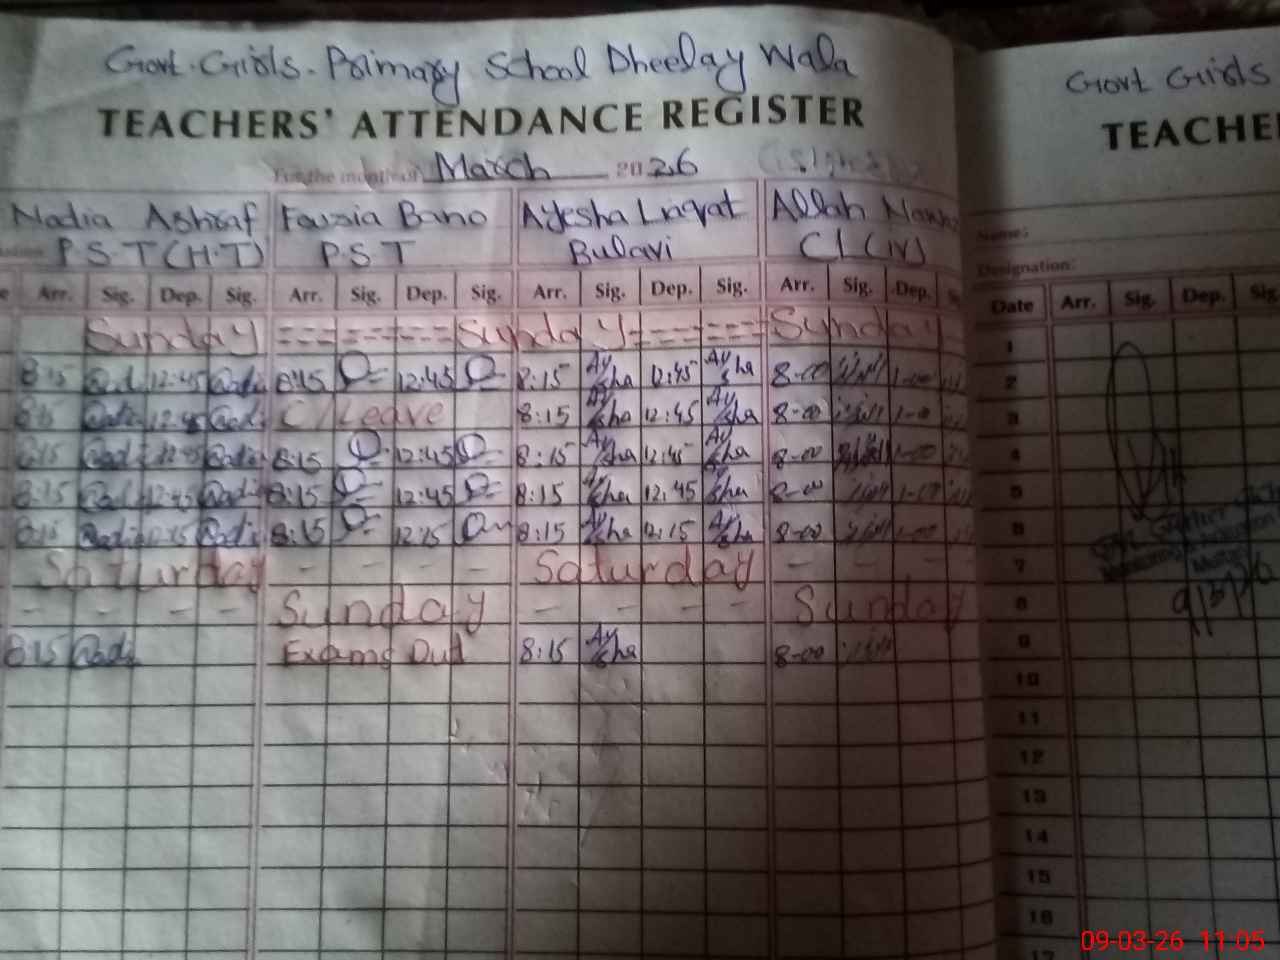 Govt. Girls. Primary School Dheelay Wala
TEACHERS' ATTENDANCE REGISTER
For the month of March 2026
Nadia Ashraf Fouzia Bano Ayesha Liaqat Allah
P.S.T (H.T) P.S.T Bulavi C/L (IV)
Arr. Sig. Dep. Sig. Arr. Sig. Dep. Sig. Arr. Sig. Dep. Sig. Arr. Sig. Dep.
Sunday Sunday Sunday
8:15 12:45 8:15 12:45 8:15 Aysha 12:45 Aysha 8-00 1-00
8:15 12:45 C/Leave 8:15 Aysha 12:45 Aysha 8-00 1-00
8:15 12:45 8:15 12:45 8:15 Aysha 12:45 Aysha 8-00 1-00
8:15 12:45 8:15 12:45 8:15 Aysha 12:45 Aysha 8-00 1-00
8:15 12:15 8:15 12:15 8:15 Aysha 12:15 Aysha 8-00 1-00
Saturday - - - - Saturday - - -
- - - - Sunday - - - - Sunday
8:15 Exams Dut 8:15 Aysha 8-00
Govt Girls
TEACHE
Name:
Designation:
Date Arr. Sig. Dep. Sig
1
2
3
4
5
6
7
8
9
10
11
12
13
14
15
16
17
9/3/26
09-03-26 11:05